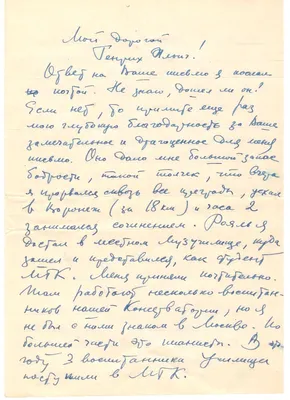 Мой дорогой
Генрих Ильич!
Ответ на Ваше письмо я послал
почтой. Не знаю, дошел ли он?
Если нет, то примите еще раз
мою глубокую благодарность за Ваше
замечательное и драгоценное для меня
письмо. Оно дало мне большой запас
бодрости, такой толчек, что вчера
я прорвался сквозь все преграды, уехал
в Воронеж (за 18 км) и часа 2
занимался сочинением. Рояль я
достал в местном Музучилище, куда
зашел и представился, как студент
МГК. Меня приняли почтительно.
Там работают несколько воспитан-
ников нашей Консерватории, но я
не был с ними знаком в Москве. По
большей части это пианисты. В
году 3 воспитанники училища
поступили в МГК.